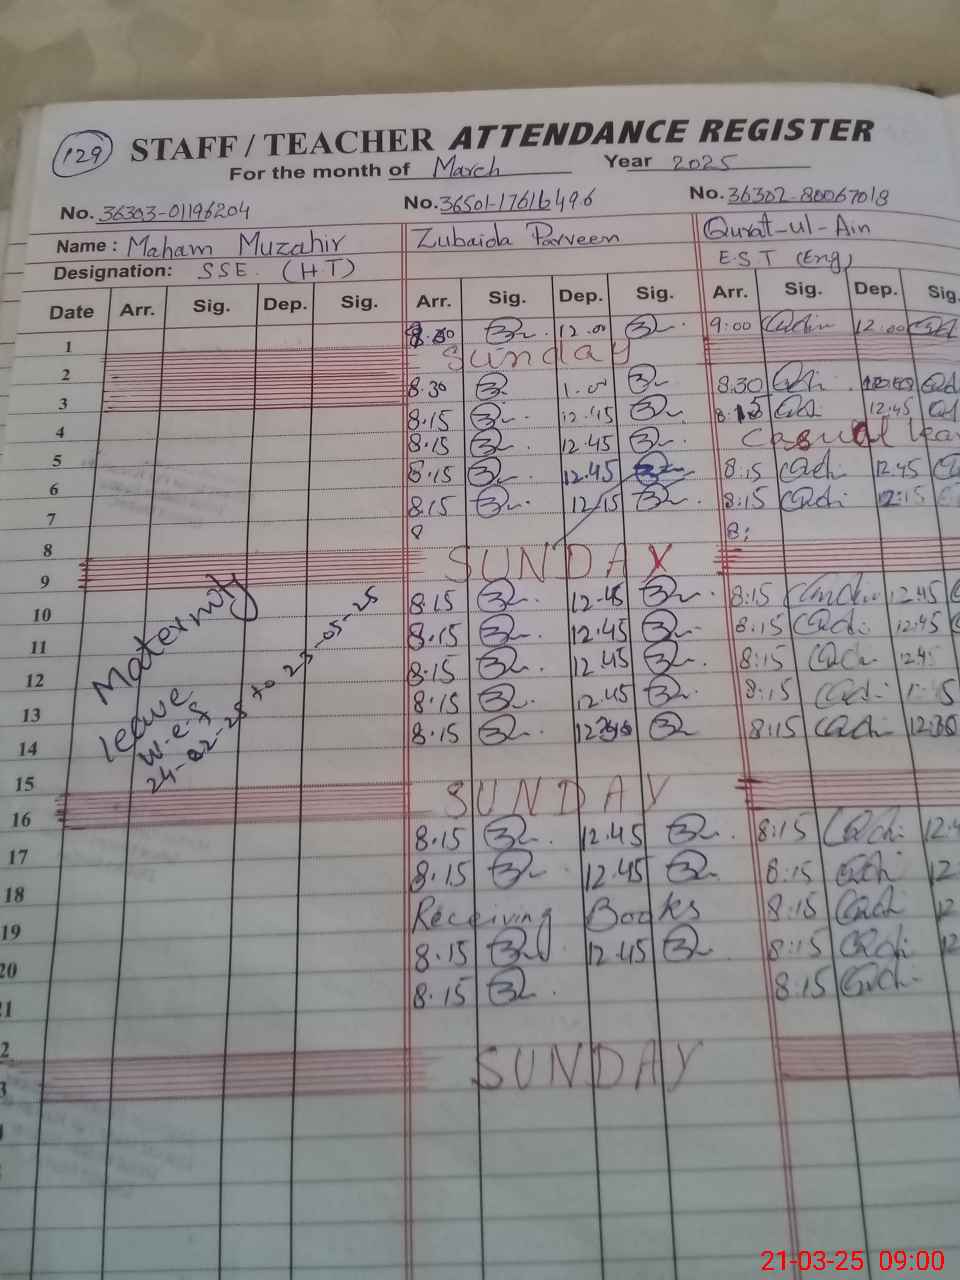 129 STAFF / TEACHER ATTENDANCE REGISTER
For the month of March Year 2025
No. 36303-01196204 No. 36501-1761649-6 No. 36302-80067018
Name : Maham Muzahir Zubaida Parveen Qurat-ul-Ain
Designation: SSE. (H.T) E.S.T (Eng)
Date Arr. Sig. Dep. Sig. Arr. Sig. Dep. Sig. Arr. Sig. Dep. Sig.
1 12.00 9:00 12:00
Sunday
2 8.30 1.00 8.30
3 8.15 12.45 8.15 12.45
4 8.15 12.45 Casual lea
5 8.15 12.45 8:15 12:45
6 8.15 12/15 8:15 12:15
7 8 8:
8 SUNDAY
9 8.15 12.45 8:15 12:45
10 8.15 12.45 8:15 12:45
11 8.15 12.45 8:15 12:45
12 8.15 12.45 8:15
13 8.15 8:15 12:30
14
15 SUNDAY
16 8.15 12.45 8:15 12:4
17 8.15 12.45 8:15 12
18 Receiving Books 8:15 12
19 8.15 12.45 8:15 12
20 8.15 8:15
21
2 SUNDAY
3
Maternity
leave
w.e.f
24-02-25 to 23-05-25
21-03-25 09:00